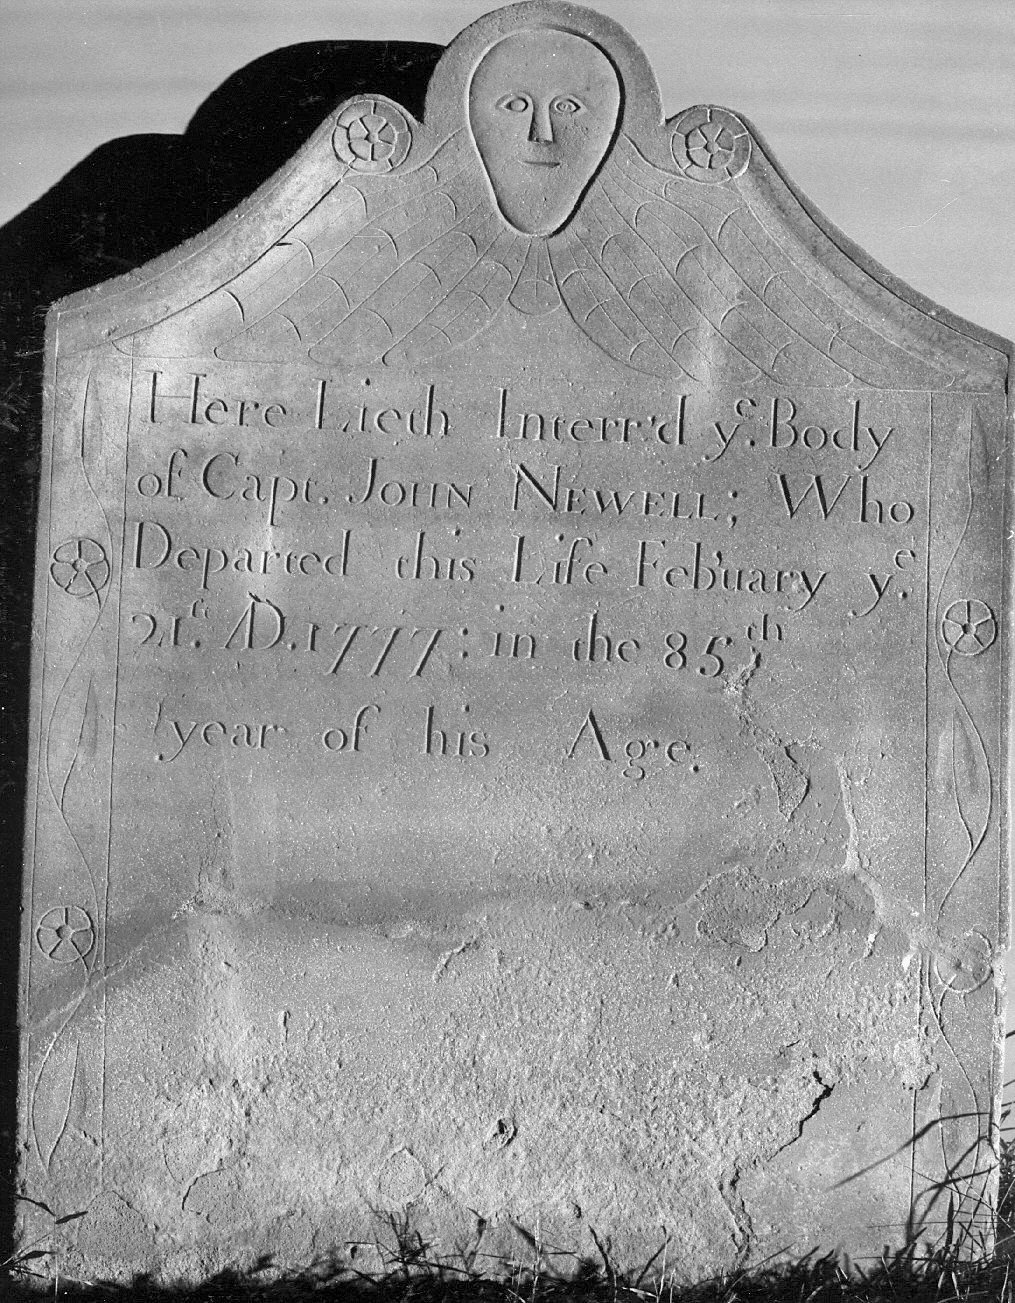 Here Lieth Interr'd yᵉ. Body
of Capt. JOHN NEWELL; Who
Departed this Life Feb'uary yᵉ.
21ˢᵗ. AD. 1777: in the 85ᵗʰ
year of his Age.